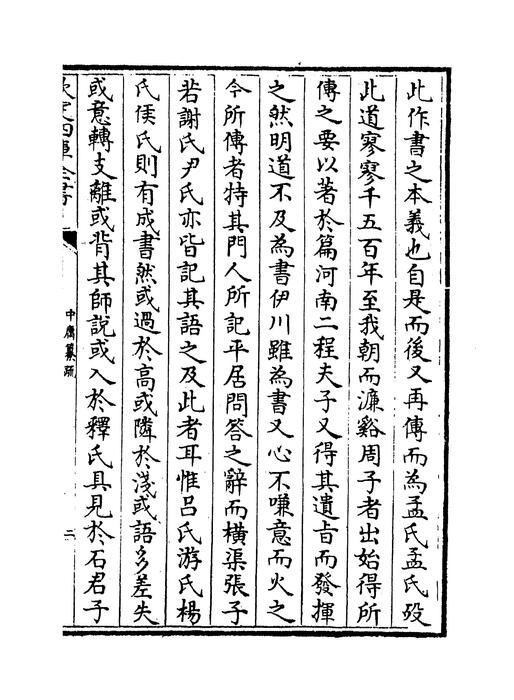 此作書之本義也自是而後又再傳而為孟氏孟氏歿
此道寥寥千五百年至我朝而濂谿周子者出始得所
傳之要以著於篇河南二程夫子又得其遺旨而發揮
之然明道不及為書伊川雖為書又心不嗛意而火之
今所傳者特其門人所記平居問答之辭而橫渠張子
若謝氏尹氏亦皆記其語之及此者耳惟呂氏游氏楊
氏侯氏則有成書然或過於高或隣於淺或語多差失
或意轉支離或背其師說或入於釋氏具見於石君子
欽定四庫全書
中庸纂疏
二